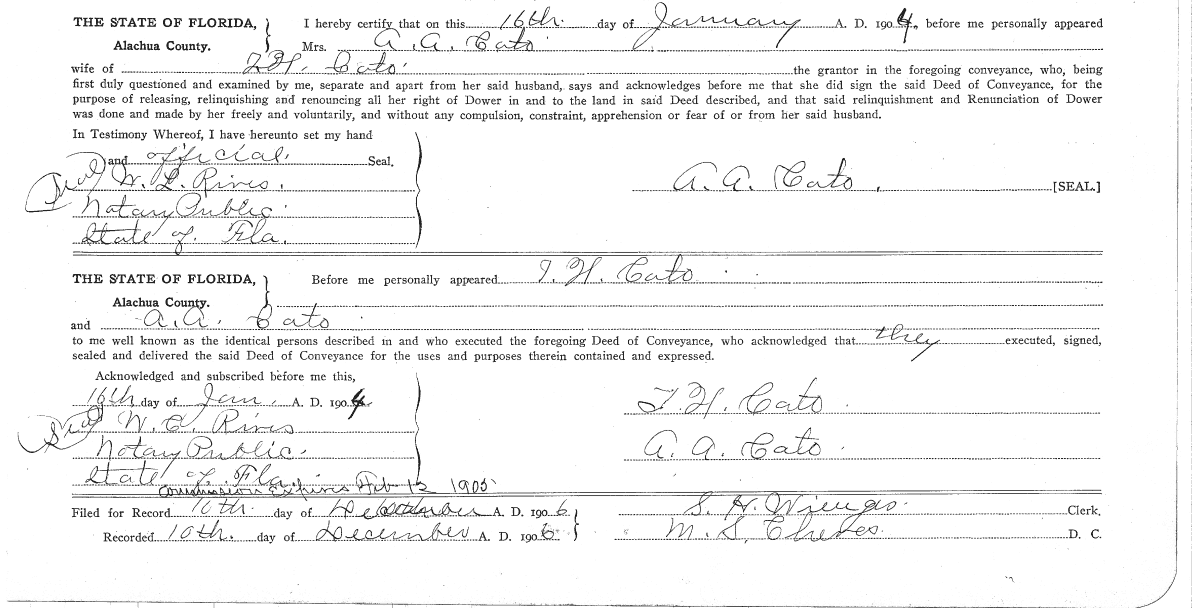 THE STATE OF FLORIDA, } I hereby certify that on this 16th. day of January A. D. 1904, before me personally appeared
Alachua County. Mrs. A. A. Cato
wife of T. H. Cato the grantor in the foregoing conveyance, who, being
first duly questioned and examined by me, separate and apart from her said husband, says and acknowledges before me that she did sign the said Deed of Conveyance, for the
purpose of releasing, relinquishing and renouncing all her right of Dower in and to the land in said Deed described, and that said relinquishment and Renunciation of Dower
was done and made by her freely and voluntarily, and without any compulsion, constraint, apprehension or fear of or from her said husband.
In Testimony Whereof, I have hereunto set my hand
and official. Seal.
(Seal) W. L. Rives. A. A. Cato. [SEAL.]
Notary Public
State of Fla.
THE STATE OF FLORIDA, } Before me personally appeared T. H. Cato
Alachua County.
and A. A. Cato
to me well known as the identical persons described in and who executed the foregoing Deed of Conveyance, who acknowledged that they executed, signed,
sealed and delivered the said Deed of Conveyance for the uses and purposes therein contained and expressed.
Acknowledged and subscribed before me this,
16th day of Jan. A. D. 1904 T. H. Cato
(Seal) W. C. Rives
Notary Public. A. A. Cato
State of Fla.
Commission Expires Feb 12 1905
Filed for Record 10th. day of December A. D. 1906 } S. H. Wienges Clerk.
Recorded 10th. day of December A. D. 1906 M. S. Cheves D. C.